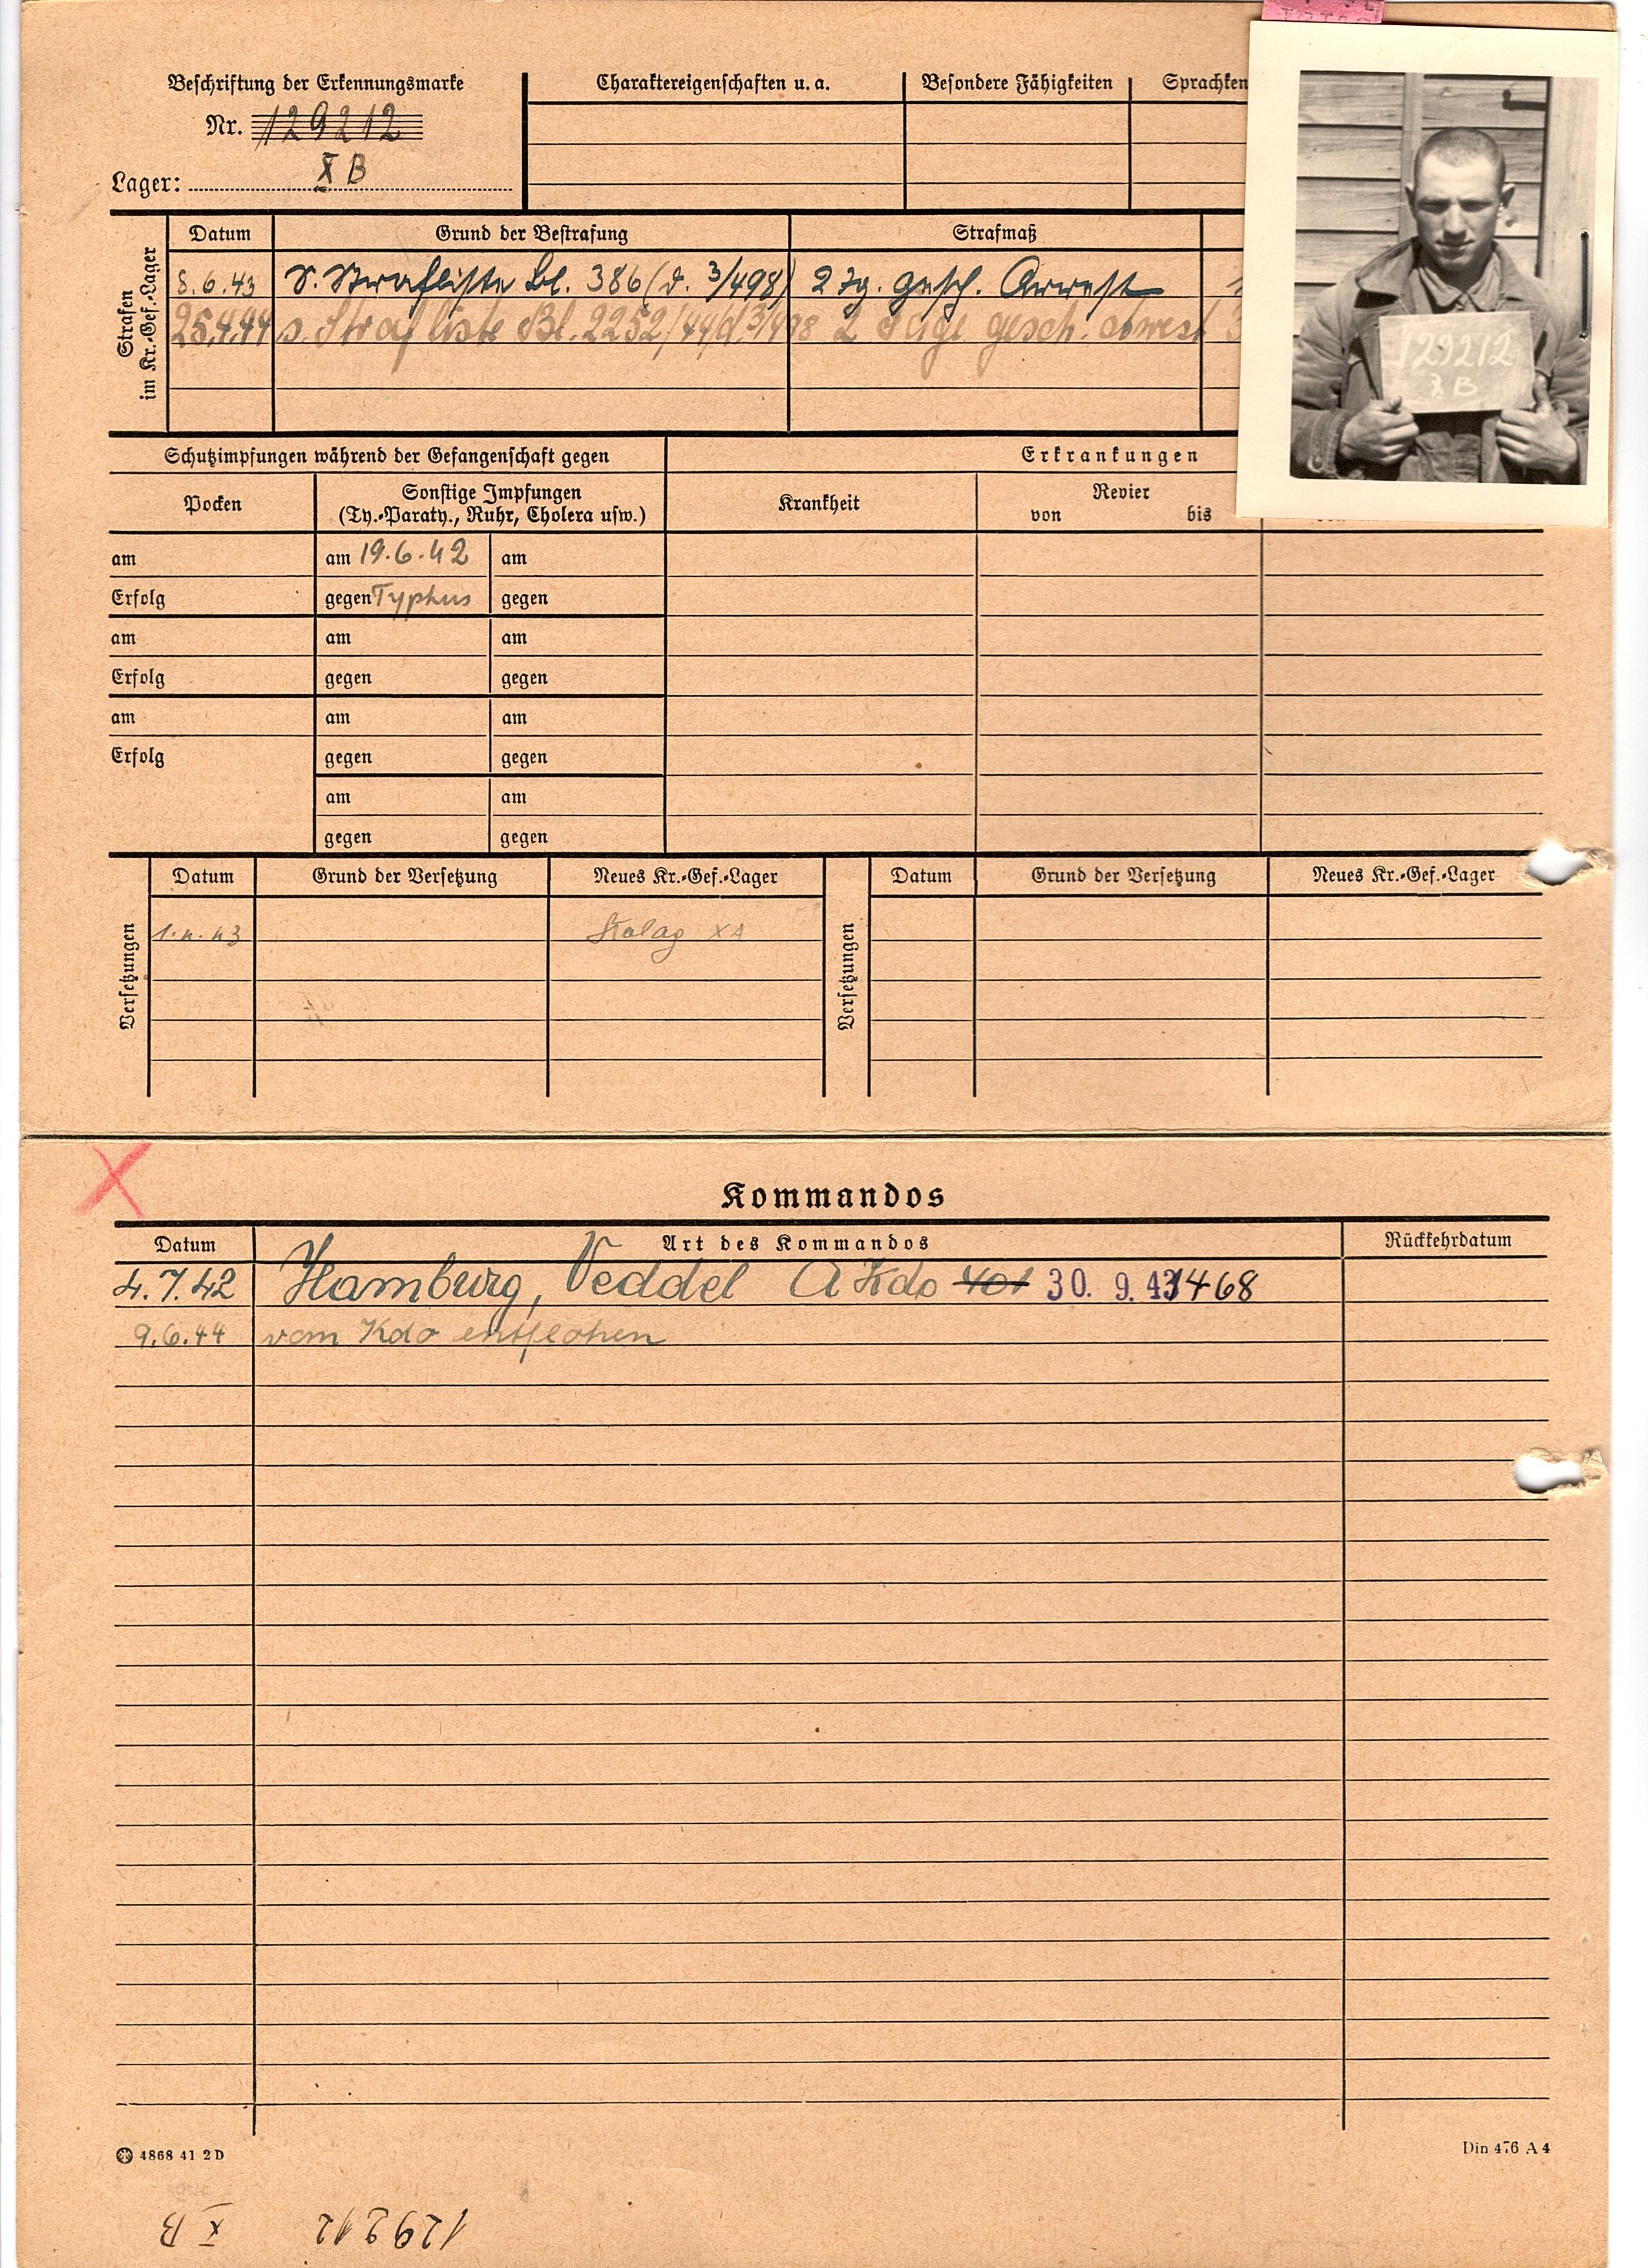 Beschriftung der Erkennungsmarke
Nr. 129212
Lager: X B
Charaktereigenschaften u. a.
Besondere Fähigkeiten
Sprachken
129212
X B
Strafen im Kr.-Gef.-Lager
Datum Grund der Bestrafung Strafmaß
8.6.43 S. Strafliste Bl. 386 (d. 3/498) 2 Tg. gesch. Arrest
25.4.44 s. Strafliste Bl. 2252/44/d 3/498 2 Tage gesch. Arrest
Schutzimpfungen während der Gefangenschaft gegen Erkrankungen
Pocken Sonstige Impfungen (Ty.-Paraty., Ruhr, Cholera usw.) Krankheit Revier von bis
am am 19.6.42 am
Erfolg gegen Typhus gegen
am am am
Erfolg gegen gegen
am am am
Erfolg gegen gegen
am am
gegen gegen
Versetzungen Datum Grund der Versetzung Neues Kr.-Gef.-Lager Versetzungen Datum Grund der Versetzung Neues Kr.-Gef.-Lager
1.4.43 Stalag XA
Kommandos
Datum Art des Kommandos Rückkehrdatum
4.7.42 Hamburg, Veddel A Kdo 401 30. 9. 43 1468
9.6.44 vom Kdo entflohen
4868 41 2 D
Din 476 A 4
129212 X B